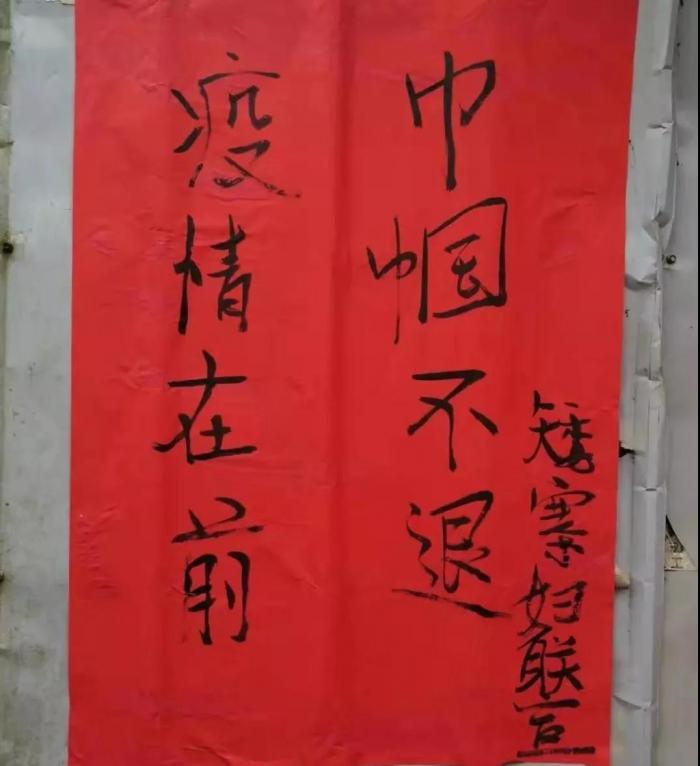 疫情在前
巾帼不退
矮寨妇联宣